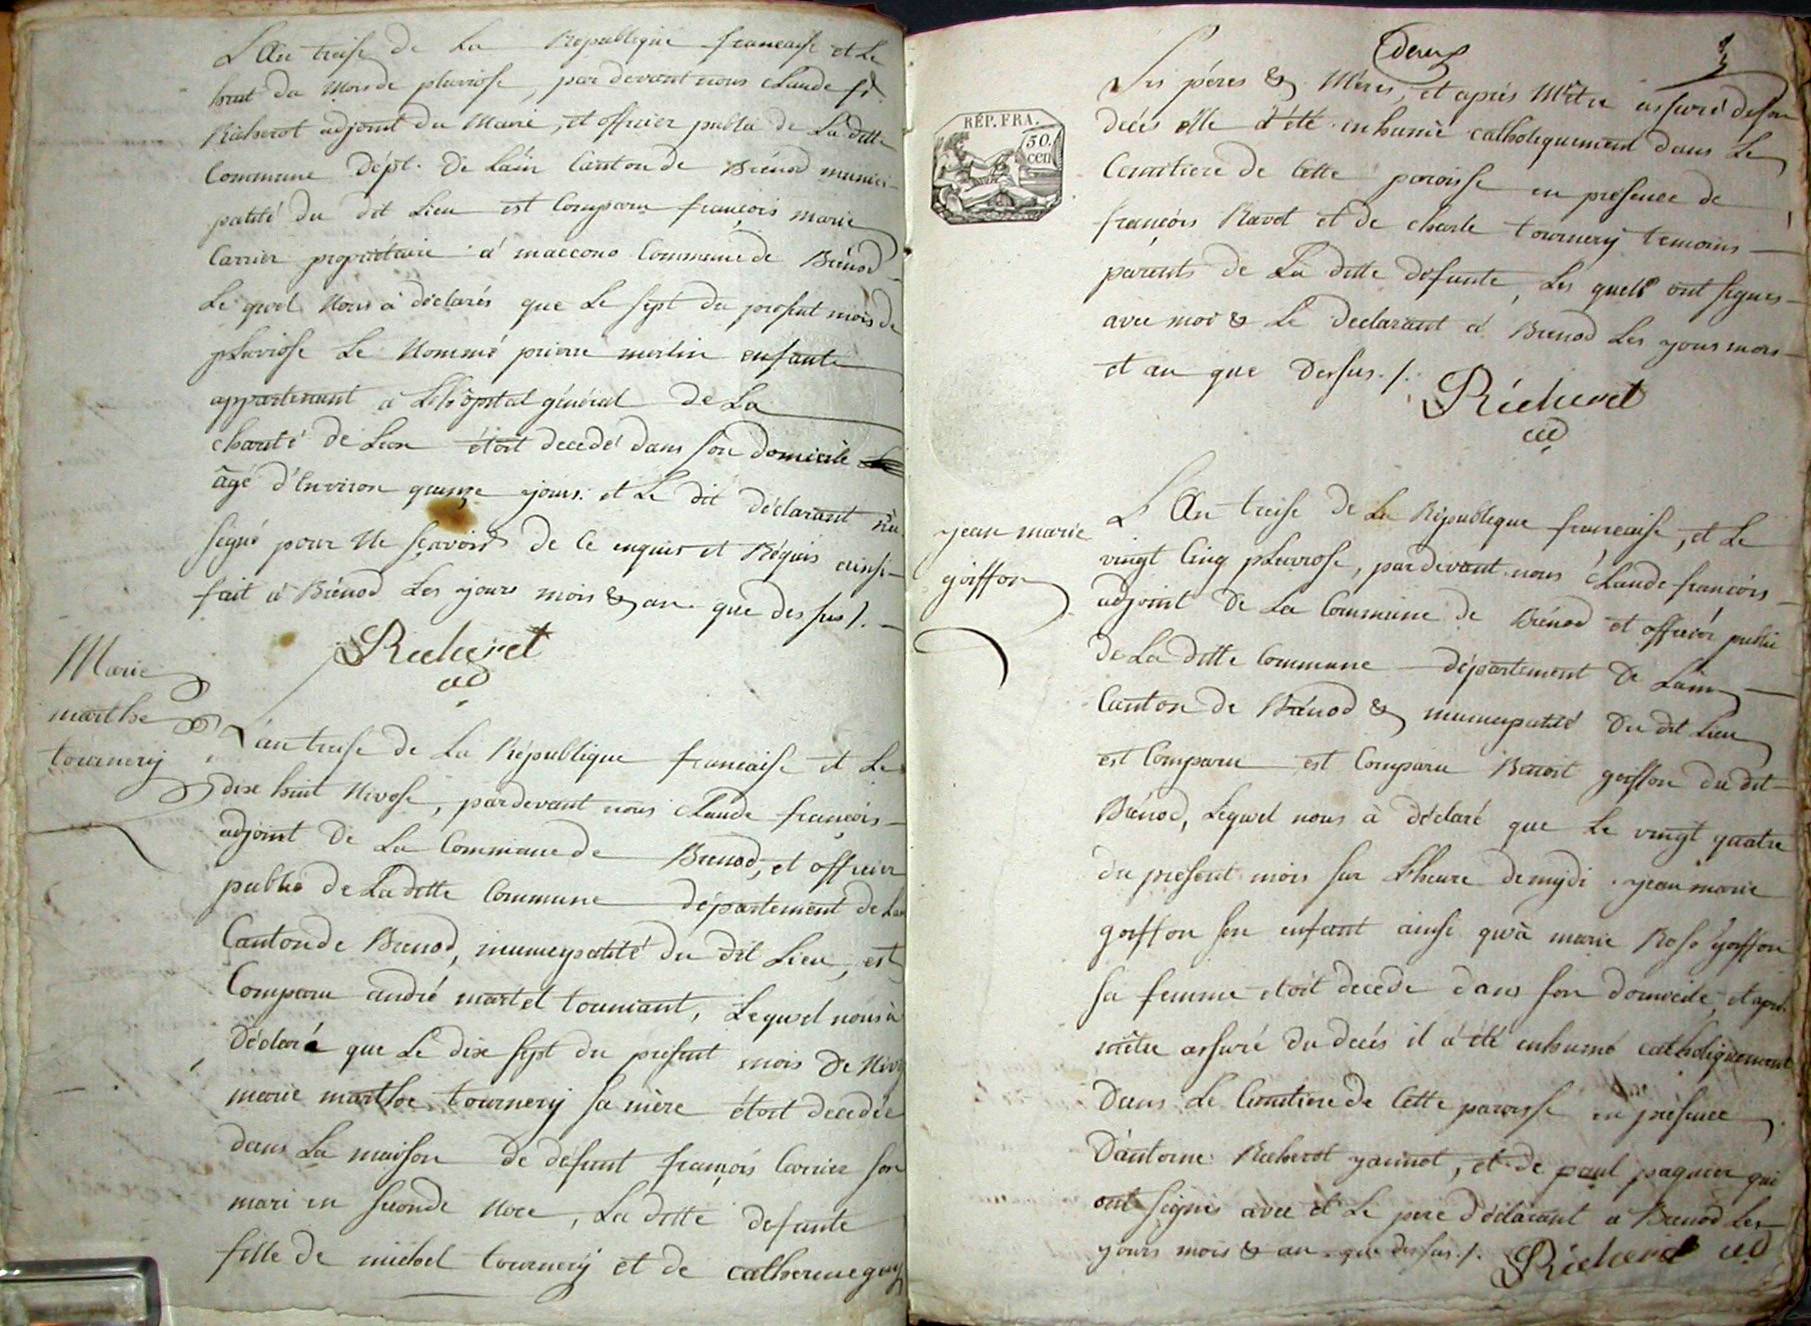 L'An treise de La République francaise et Le
huit du Mois de pluviose, par devant nous Claude fs.
Richerot adjoint du Maire, et officier public de La ditte
Commune dépt. De Lain Canton de Brénod munici-
palité du dit Lieu est Comparu françois marie
Carrier propriétaire à macconod Commune de Brénod
Le quel Nous à déclarés que Le sept du présent mois de
pluviose Le Nommé prierre merlin enfant
appartenant à L'hôpital général De La
charité de Lion étoit decedé dans son domicile
âgé d'Environ quinze yours. et Le dit déclarant n'a
signé pour Ne sçavoir de Ce enquis et Réquis ainsi
fait à Brénod Les yours mois & an que dessus /.
Richerot
Marie
marthe
tournery
L'an treise de La République francaise et Le
dix huit Nivose, pardevant nous Claude françois
adjoint De La Commune de Brenod, et officier
public de La ditte Commune département de Lain
Canton de Brenod, municipalité du dit Lieu, est
Comparu andré martel tournant, Lequel nous à
Déclaré que Le dix sept du présent mois De Niv
marie marthe tournery sa mère étoit decedée
dans La maison de defunt françois Carrier son
mari en seconde Noce, La ditte defunte
fille de michel tournery et de catherine guy
deux
Ses péres & Méres, et aprés M'être assuré de son
decés elle à été inhumé catholiquement dans Le
Cemitiere de Cette paroisse en présence de
françois Ravet et de charle tournery temoins
parents de La ditte defunte, Les quels ont signes
avec moi & Le declarant à Brenod Les yours mois
et an que Dessus. /.
Richerot
RÉP. FRA.
50.
cen
jean marie
goiffon
L'An treise De La République francaise, et Le
vingt Cinq pluviose, pardevant nous Claude françois
adjoint De La Commune de Brénod et officier public
de La ditte Commune département De Lain
Canton de Brénod & municipalité Du dit Lieu
est Comparu est Comparu Benoit goiffon du dit
Brénod, Lequel nous à déclaré que Le vingt quatre
du présent mois sur L'heure de mydi jean marie
goiffon son enfant ainsi qu'à marie Rose goiffon
sa femme étoit decede dans son domicile, et aprés
m'être assuré du decés il à été inhumé catholiquement
Dans Le Cimitiere de Cette paroisse en présence
D'antoine Richerot yannot, et de paul paquier qui
ont signés avec et Le pere déclarant à Brenod Les
yours mois & an que dessus. /. Richerot